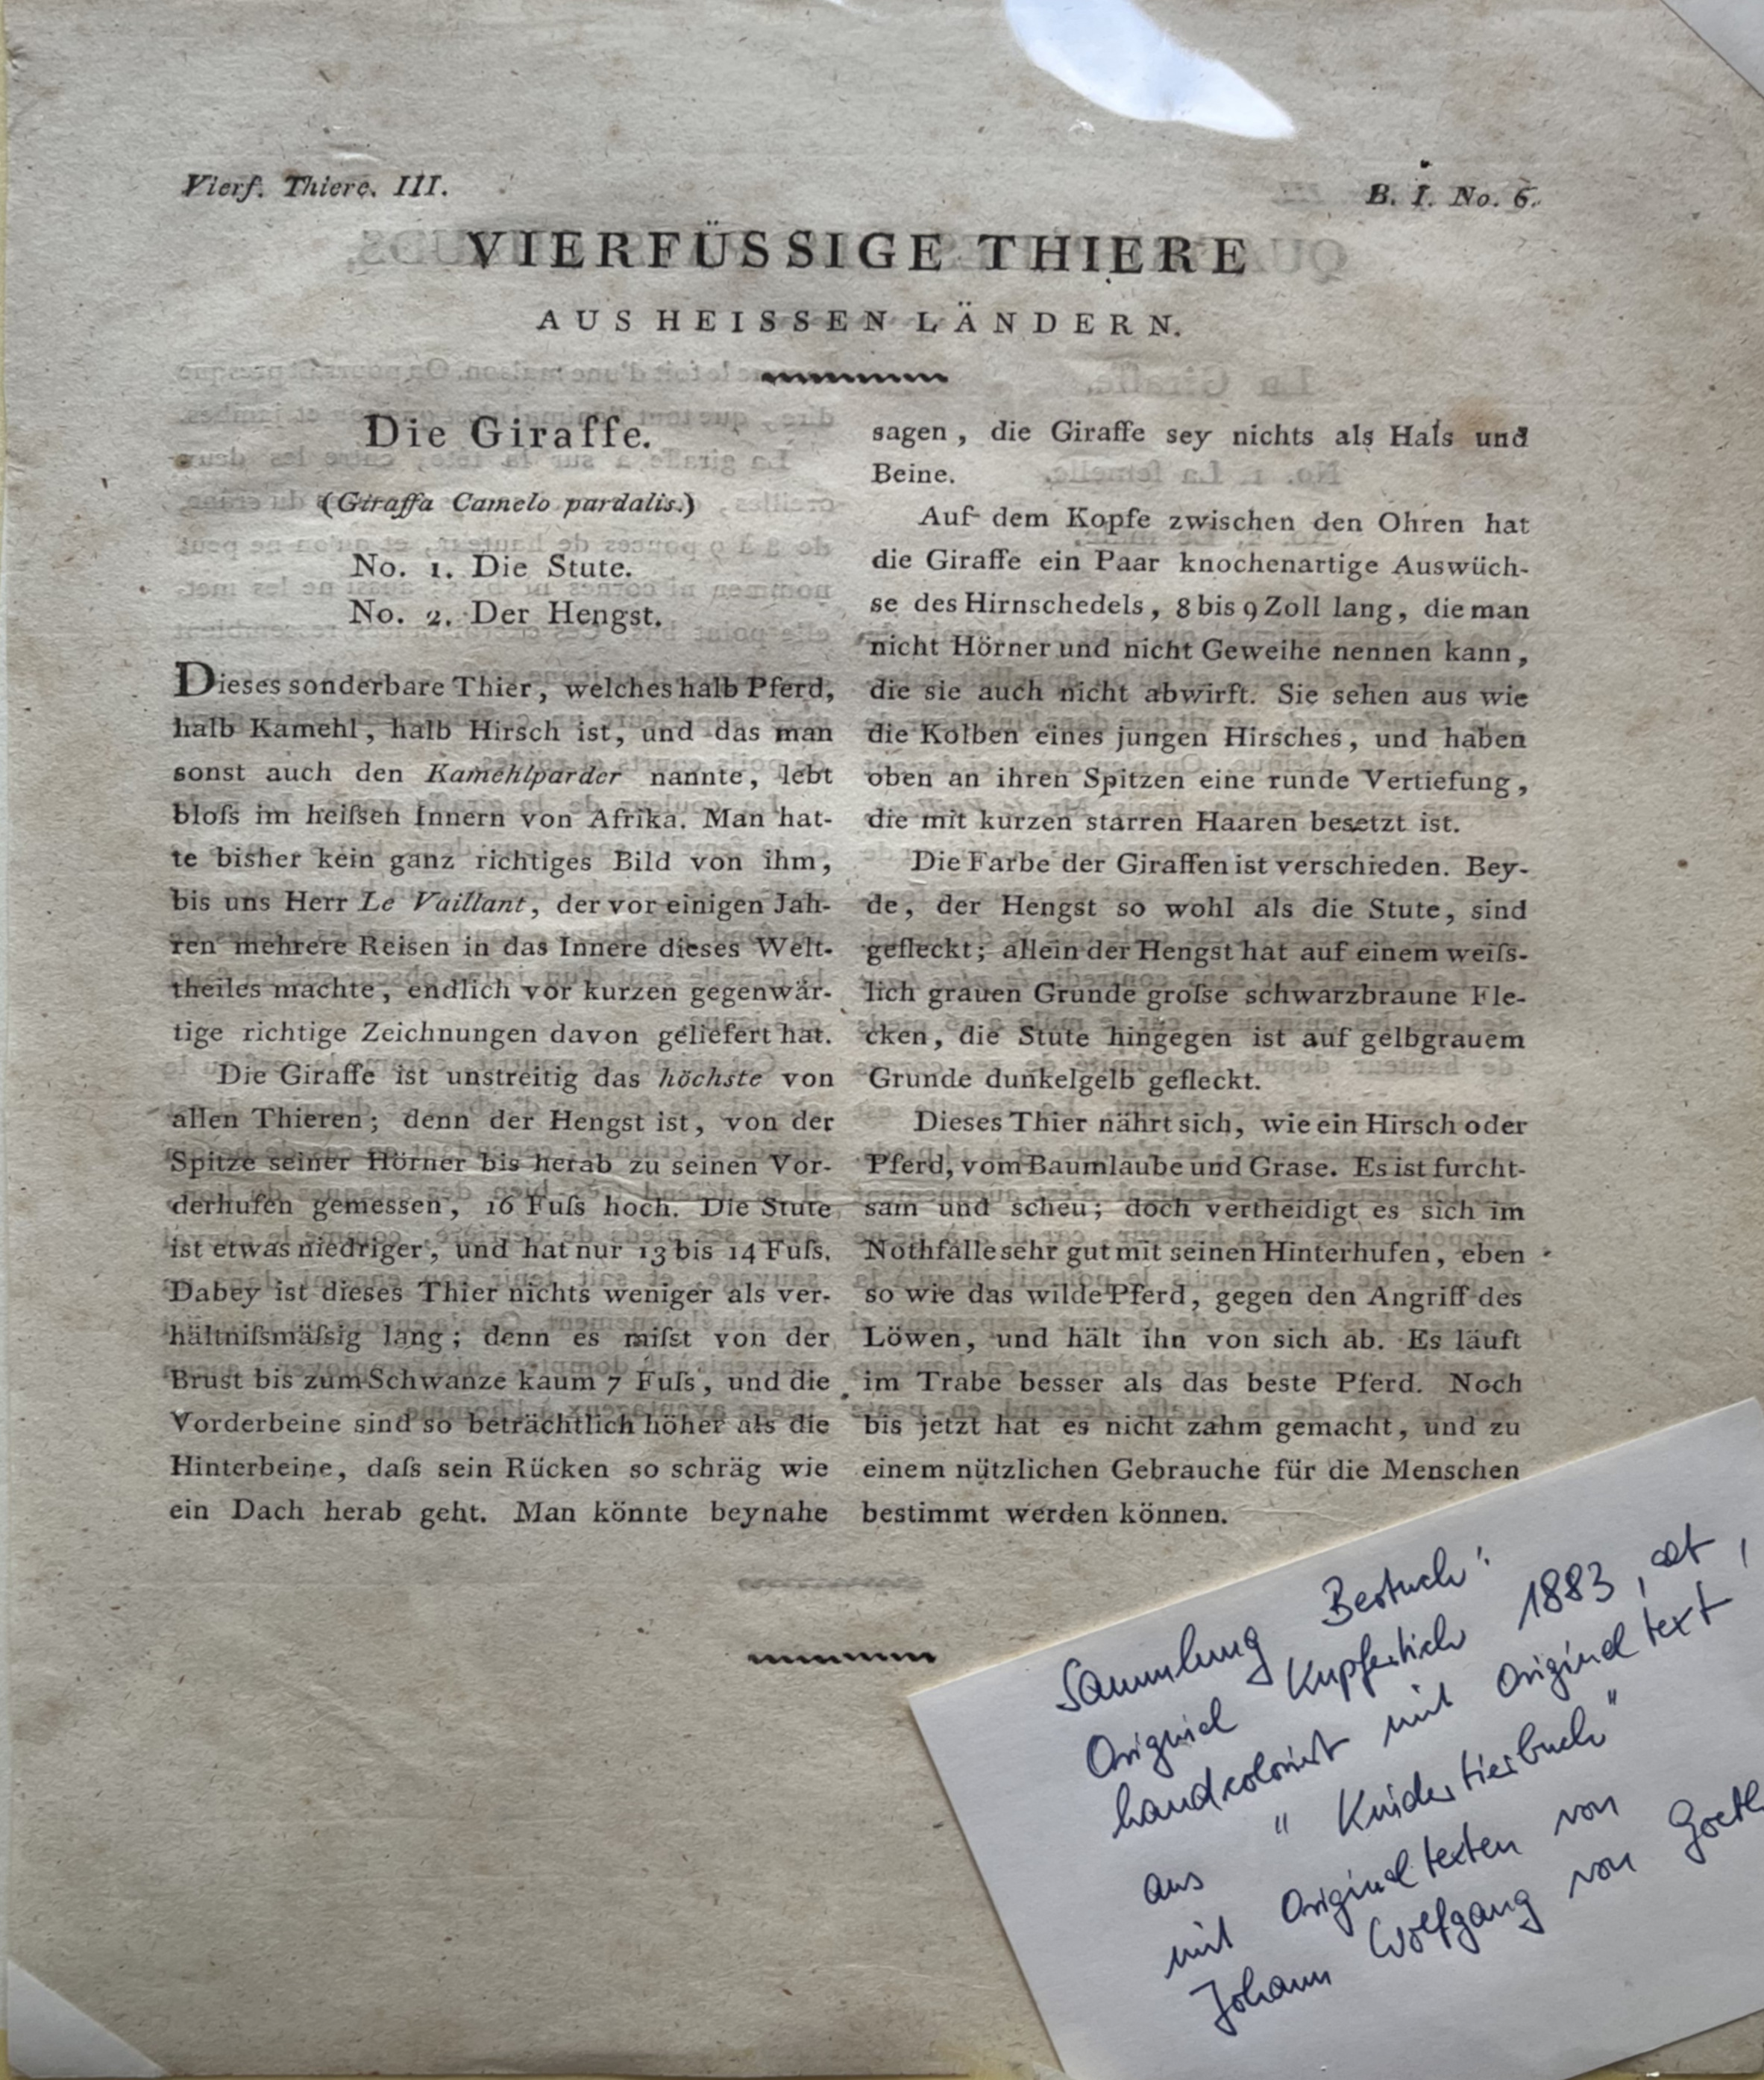 Vierf. Thiere. III.
B. I. No. 6.
VIERFÜSSIGE THIERE
AUS HEISSEN LÄNDERN.
Die Giraffe.
(Giraffa Camelo pardalis.)
No. 1. Die Stute.
No. 2. Der Hengst.
Dieses sonderbare Thier, welches halb Pferd,
halb Kamehl, halb Hirsch ist, und das man
sonst auch den Kamehlparder nannte, lebt
bloſs im heiſsen Innern von Afrika. Man hat-
te bisher kein ganz richtiges Bild von ihm,
bis uns Herr Le Vaillant, der vor einigen Jah-
ren mehrere Reisen in das Innere dieses Welt-
theiles machte, endlich vor kurzen gegenwär-
tige richtige Zeichnungen davon geliefert hat.
Die Giraffe ist unstreitig das höchste von
allen Thieren; denn der Hengst ist, von der
Spitze seiner Hörner bis herab zu seinen Vor-
derhufen gemessen, 16 Fuſs hoch. Die Stute
ist etwas niedriger, und hat nur 13 bis 14 Fuſs.
Dabey ist dieses Thier nichts weniger als ver-
hältniſsmäſsig lang; denn es miſst von der
Brust bis zum Schwanze kaum 7 Fuſs, und die
Vorderbeine sind so beträchtlich höher als die
Hinterbeine, daſs sein Rücken so schräg wie
ein Dach herab geht. Man könnte beynahe
sagen, die Giraffe sey nichts als Hals und
Beine.
Auf dem Kopfe zwischen den Ohren hat
die Giraffe ein Paar knochenartige Auswüch-
se des Hirnschedels, 8 bis 9 Zoll lang, die man
nicht Hörner und nicht Geweihe nennen kann,
die sie auch nicht abwirft. Sie sehen aus wie
die Kolben eines jungen Hirsches, und haben
oben an ihren Spitzen eine runde Vertiefung,
die mit kurzen starren Haaren besetzt ist.
Die Farbe der Giraffen ist verschieden. Bey-
de, der Hengst so wohl als die Stute, sind
gefleckt; allein der Hengst hat auf einem weiſs-
lich grauen Grunde groſse schwarzbraune Fle-
cken, die Stute hingegen ist auf gelbgrauem
Grunde dunkelgelb gefleckt.
Dieses Thier nährt sich, wie ein Hirsch oder
Pferd, vom Baumlaube und Grase. Es ist furcht-
sam und scheu; doch vertheidigt es sich im
Nothfalle sehr gut mit seinen Hinterhufen, eben
so wie das wilde Pferd, gegen den Angriff des
Löwen, und hält ihn von sich ab. Es läuft
im Trabe besser als das beste Pferd. Noch
bis jetzt hat es nicht zahm gemacht, und zu
einem nützlichen Gebrauche für die Menschen
bestimmt werden können.
Sammlung Bertuch:
Original Kupferstich 1883, alt,
handcoloriert mit Originaltext
aus "Kindertierbuch"
mit Originaltexten von
Johann Wolfgang von Goeth